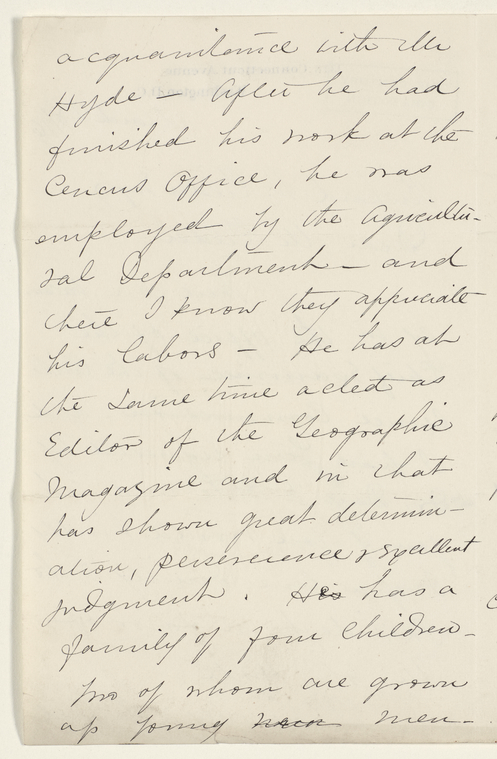 acquanitance with Mr
Hyde — After he had
finished his work at the
Cencus Office, he was
employed by the Agricultu-
ral Department — and
there I know they appreciate
his labors — He has at
the same time acted as
Editor of the Geographic
Magazine and in that
has shown great determin-
ation, perserience & excellent
judgment. He has a
family of four children —
two of whom are grown
up young men —